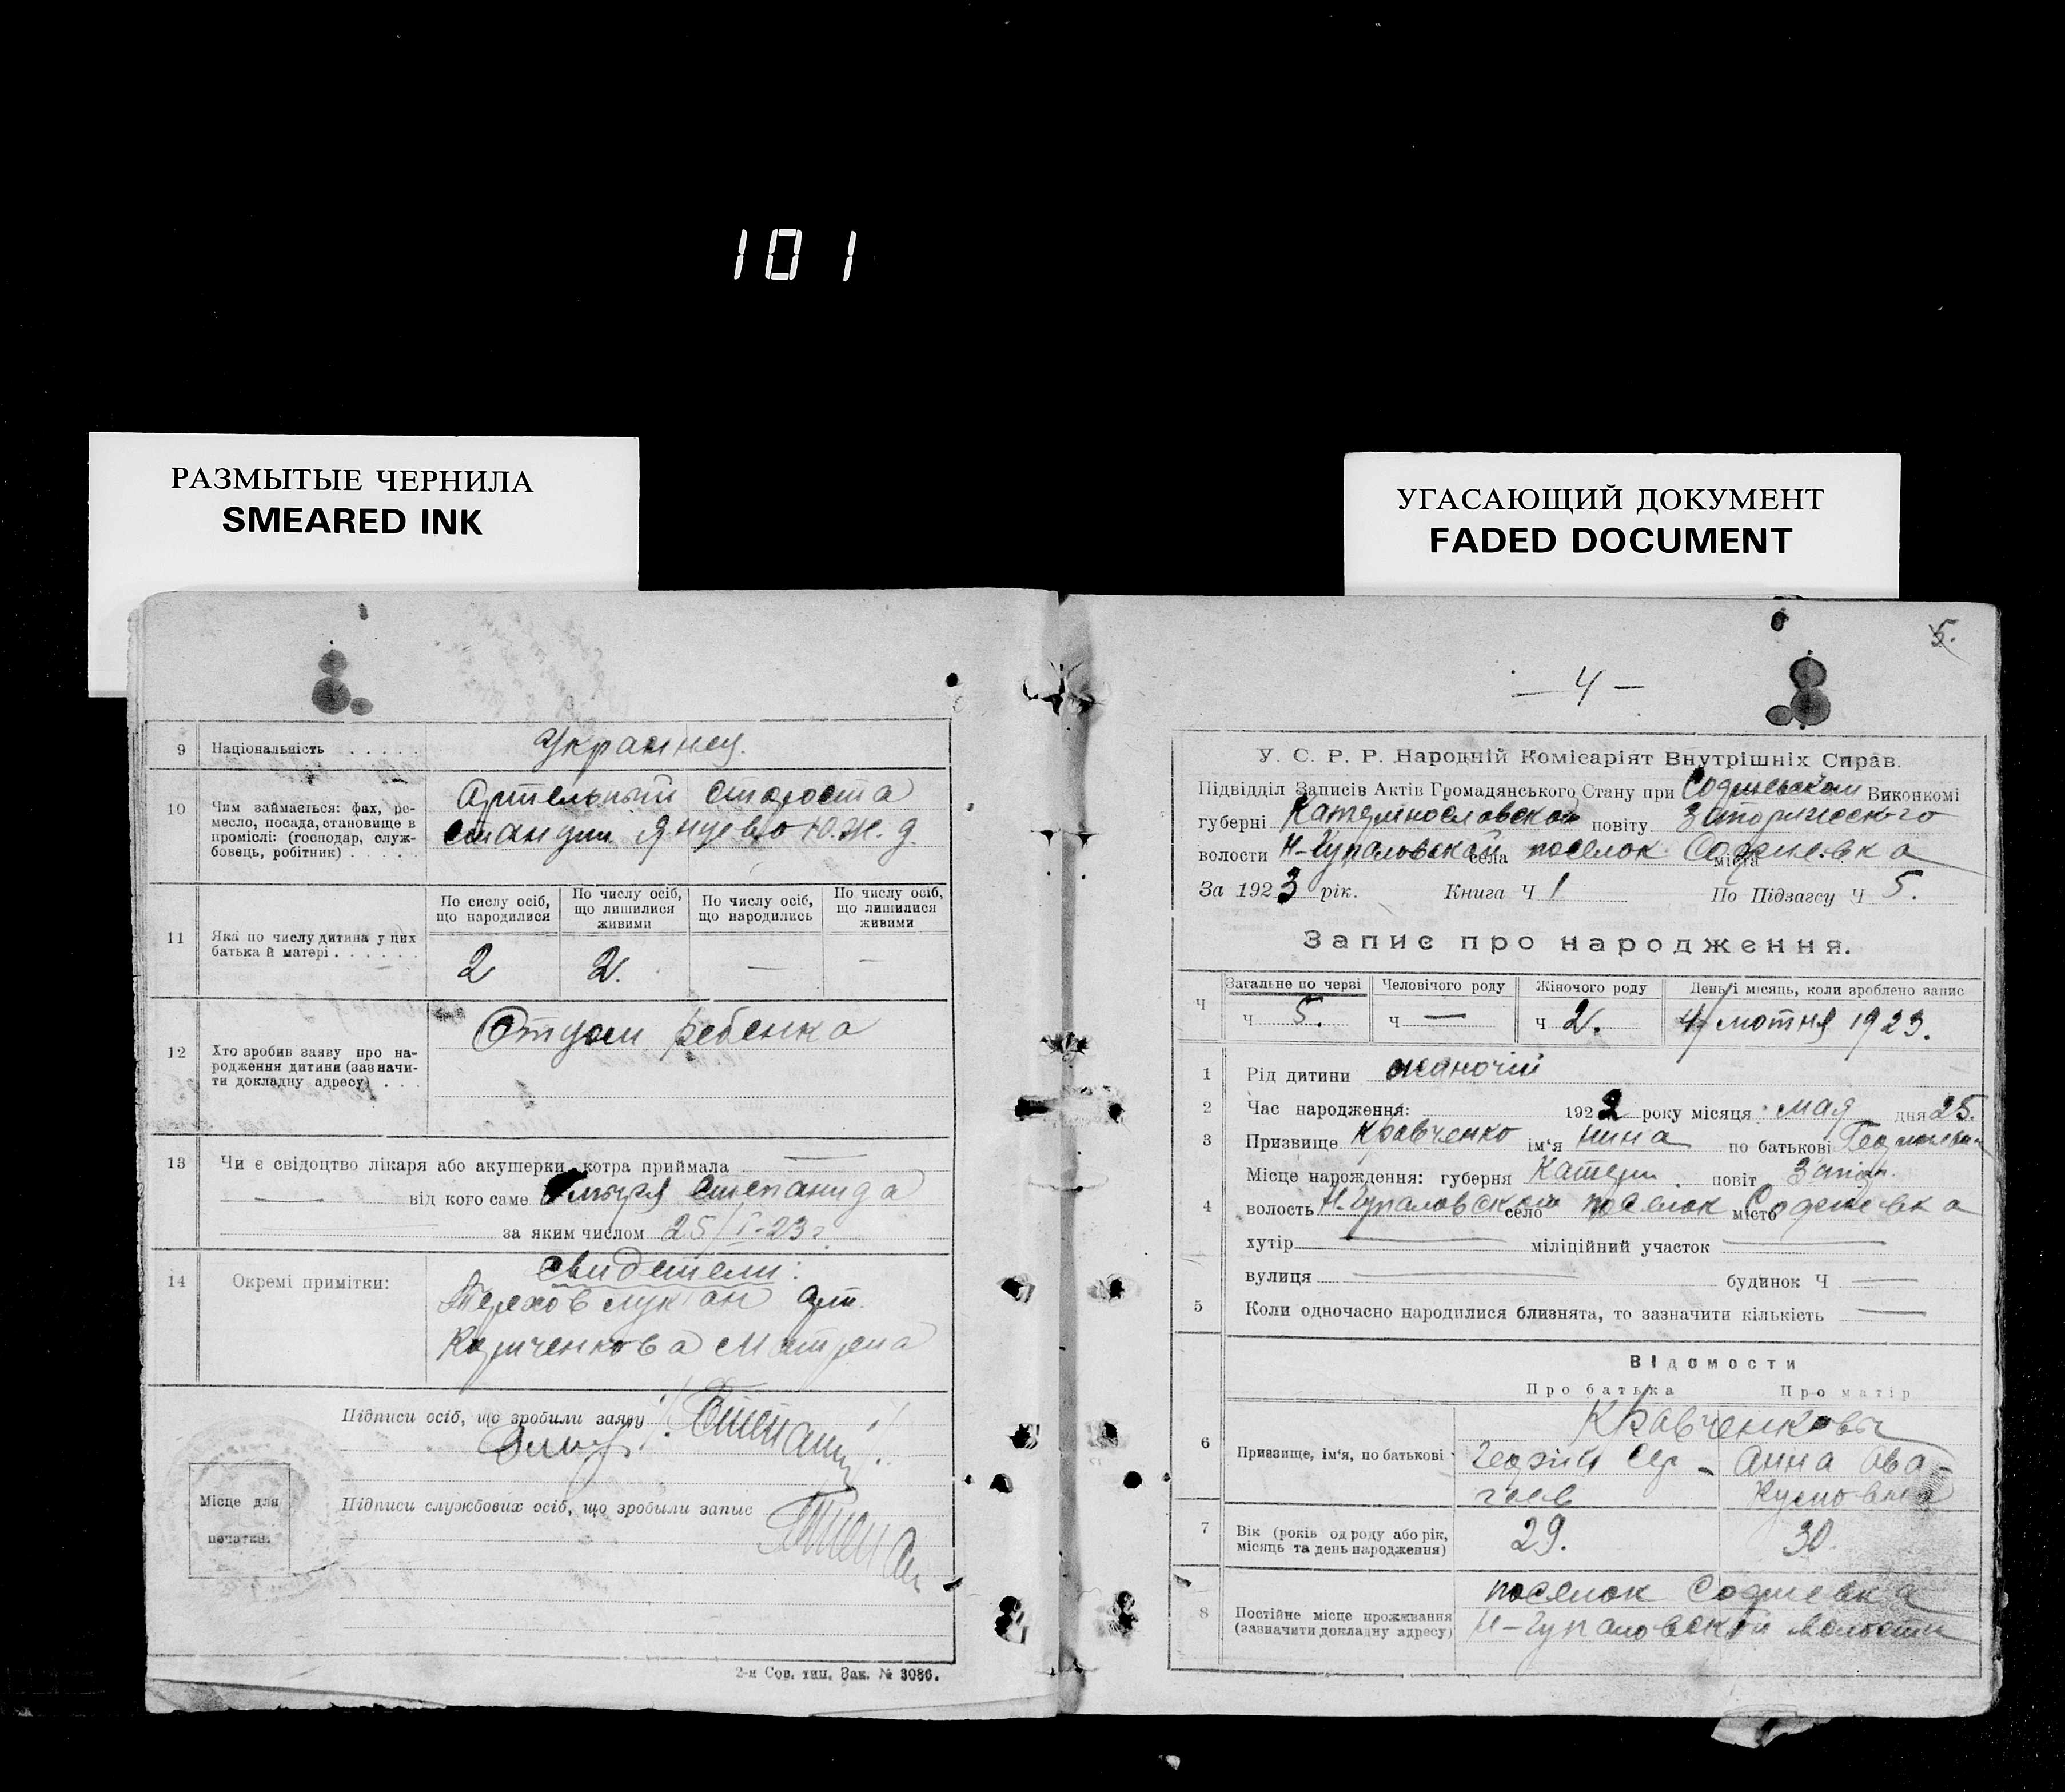 101
РАЗМЫТЫЕ ЧЕРНИЛА
SMEARED INK
УГАСАЮЩИЙ ДОКУМЕНТ
FADED DOCUMENT
9 Національність . . . . . Украинец.
10 Чим займається: фах, ре-
месло, посада, становище в
проміслі: (господар, служ-
бовець, робітник) . . . . .
Артельный староста
станции Янцево Ю.Ж.д.
11 Яка по числу дитина у цих
батька й матері . . . . . .
По сислу осіб,
що народилися
По числу осіб,
що лишилися
живими
По числу осіб,
що народились
По числу осіб,
що лишилися
живими
2 2. — —
12 Хто зробив заяву про на-
родження дитини (зазначи-
ти докладну адресу) . . .
Отцом ребенка
13 Чи є свідоцтво лікаря або акушерки, котра приймала —
— від кого саме Степанида
за яким числом 25/I-23г.
14 Окремі примітки:
Свидетели:
Терехов Лукіан
Матрена
Підписи осіб, що зробили заяву
Підписи службових осіб, що зробыли запыс
Місце для
печатки.
2-я Сов. тип. Зак. № 3086.
5.
— 4 —
У. С. Р. Р. Народній Комісаріят Внутрішніх Справ.
Підвідділ Записів Актів Громадянського Стану при Виконкомі
губерні Катеринославской повіту Запорижского
волости Н-Гупаловской села поселок міста
За 1923 рік. Книга Ч 1 По Підзагсу Ч 5.
Запис про народження.
Ч
Загальне по черзі Человічого роду Жіночого роду День і місяць, коли зроблено запис
ч 5. ч — ч 2. 4/ лютня 1923.
1 Рід дитини жіночій
2 Час народження: 1922 року місяця мая дня 25.
3 Призвище Кравченко ім'я Нина по батькові
Місце нарождення: губерня Катерин. повіт Запор.
4 волость Н-Гупаловской село поселок місто
хутір — міліційний участок —
вулиця — будинок Ч —
5 Коли одночасно народилися близнята, то зазначити кількість —
Відомости
Про батька Про матір
6 Призвище, ім'я, по батькові
Кравченковы
Георгий Сер- Анна Ава-
геев кумовна
7 Вік (років од роду або рік,
місяць та день народження)
29. 30
8 Постійне місце проживання
(зазначити докладну адресу)
поселок
Н-Гупаловской волости